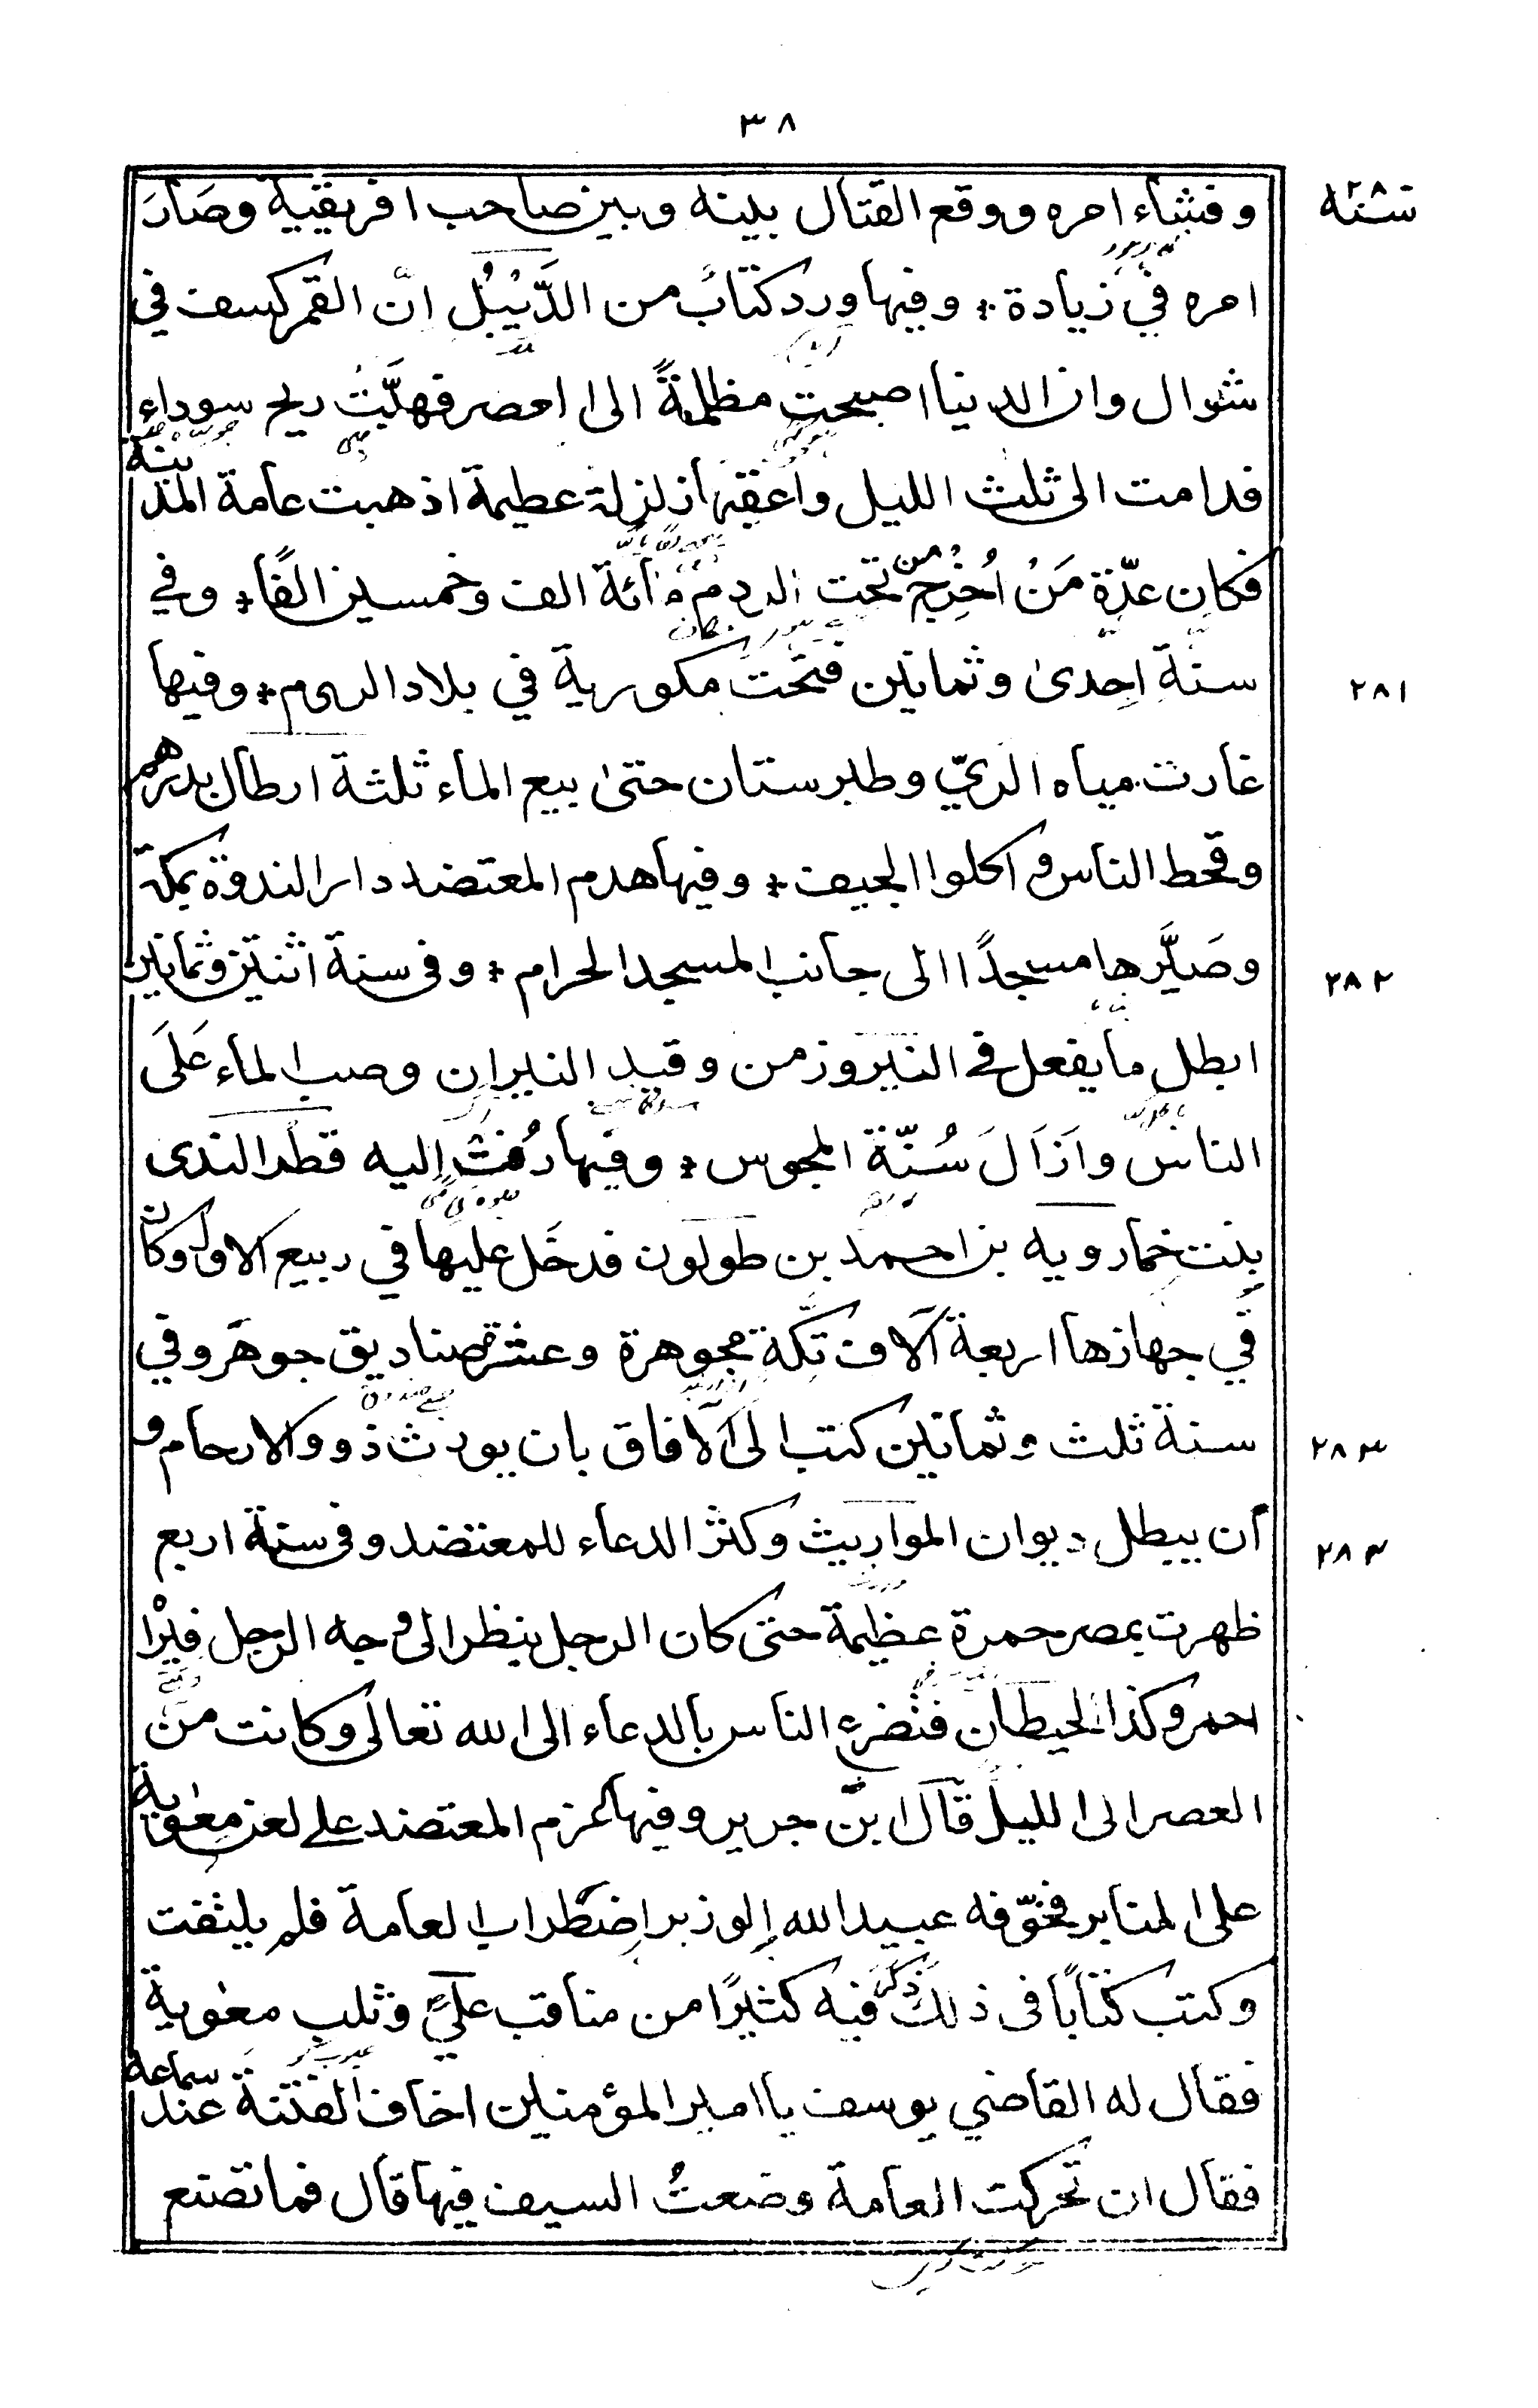 ٣٨
سنة ٢٨٠
وفشاء امره ووقع القتال بينه وبين صاحب افريقية وصَارَ
امره في زيادة ؞ وفيها ورد كتابٌ من الدَّيْبُل انّ القمر كسف في
شوال وان الدنيا اصبحت مظلمةً الى العصر فهبّت ريح سوداء
فدامت الى ثلث الليل واعقبها زلزلة عظيمة اذهبت عامة المدينة
فكان عدّة مَنْ اُخْرِج من تحت الردم مائة الف وخمسين الفًا ؞ وفي
سنة احدى وثمانين فتحت مكورية في بلاد الروم ؞ وفيها
٢٨١
غارت مياه الريّ وطبرستان حتى بيع الماء ثلثة ارطال بدرهم
وقحط الناس و اكلوا الجيف ؞ وفيها هدم المعتضد دار الندوة بمكة
وصَيَّرها مسجدًا الى جانب المسجد الحرام ؞ وفى سنة اثنتين وثمانين
٢٨٢
ابطل ما يفعل فى النيروز من وقيد النيران وصب الماء عَلَى
الناس وَاَزَالَ سُنّة المجوس ؞ وفيها زُفّت اليه قطر الندى
بنت خمارويه بن احمد بن طولون فدخَل عليها في ربيع الاول وكان
في جهازها اربعة آلاف تكّة مجوهرة وعشرة صناديق جوهر وفي
سنة ثلث وثمانين كتب الى الآفاق بان يورث ذوو الارحام و
٢٨٣
أن يبطل ديوان المواريث وكثر الدعاء للمعتضد وفى سنة اربع
٢٨٤
ظهرت بمصر حمرة عظيمة حتى كان الرجل ينظر الى وجه الرجل فيرْا
احمر وكذا الحيطان فتضرع الناس بالدعاء الى الله تعالى وكانت من
العصر الى الليل قال ابن جرير وفيها عزم المعتضد على لعن معٰوية
على المنابر فخوّفه عبيد الله الوزير اضطراب العامة فلم يلتفت
وكتب كتابًا فى ذلك ذكَرَ فيه كثيرًا من مناقب عليّ و ثلب معٰوية
فقال له القاضي يوسف يا امير المؤمنين اخاف الفتنة عند سماعه
فقال ان تحركت العامة وضعتُ السيف فيها قال فما تصنع